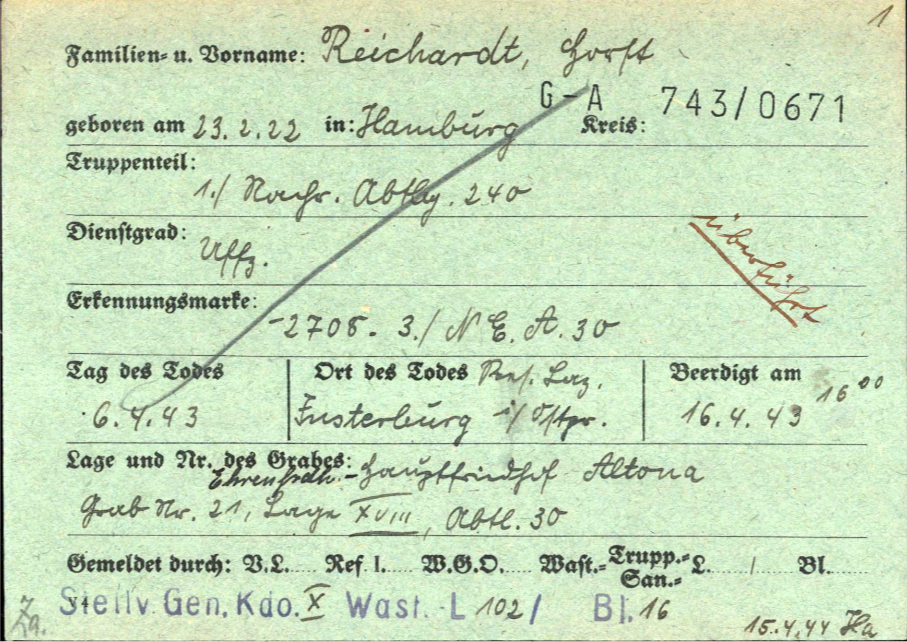 1
Familien- u. Vorname: Reichardt, Horst
G-A 743/0671
geboren am 23.2.22 in: Hamburg Kreis:
Truppenteil:
1./ Nachr. Abtlg. 240
Dienstgrad:
Uffz.
überführt
Erkennungsmarke:
-2708- 3./ N.E.A. 30
Tag des Todes Ort des Todes Res. Laz. Beerdigt am 16⁰⁰
6.4.43 Insterburg i/ Ostpr. 16.4.43
Lage und Nr. des Grabes: Ehrenfrdh.- Hauptfriedhof Altona
Grab Nr. 21, Lage XVIII, Abtl. 30
Gemeldet durch: V.L. Ref I. W.G.O. Wast.- Trupp.- San.- L. / Bl.
Stellv. Gen. Kdo. X Wast.-L 102/ Bl. 16
15.4.44 Ha